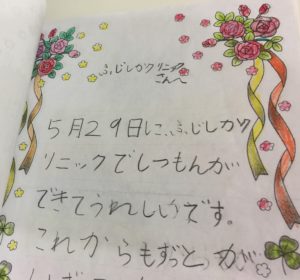 ふじしかクリニック
さんへ
5月29日に、ふじしかク
リニックでしつもんが
できてうれしいです。
これからもずっと、